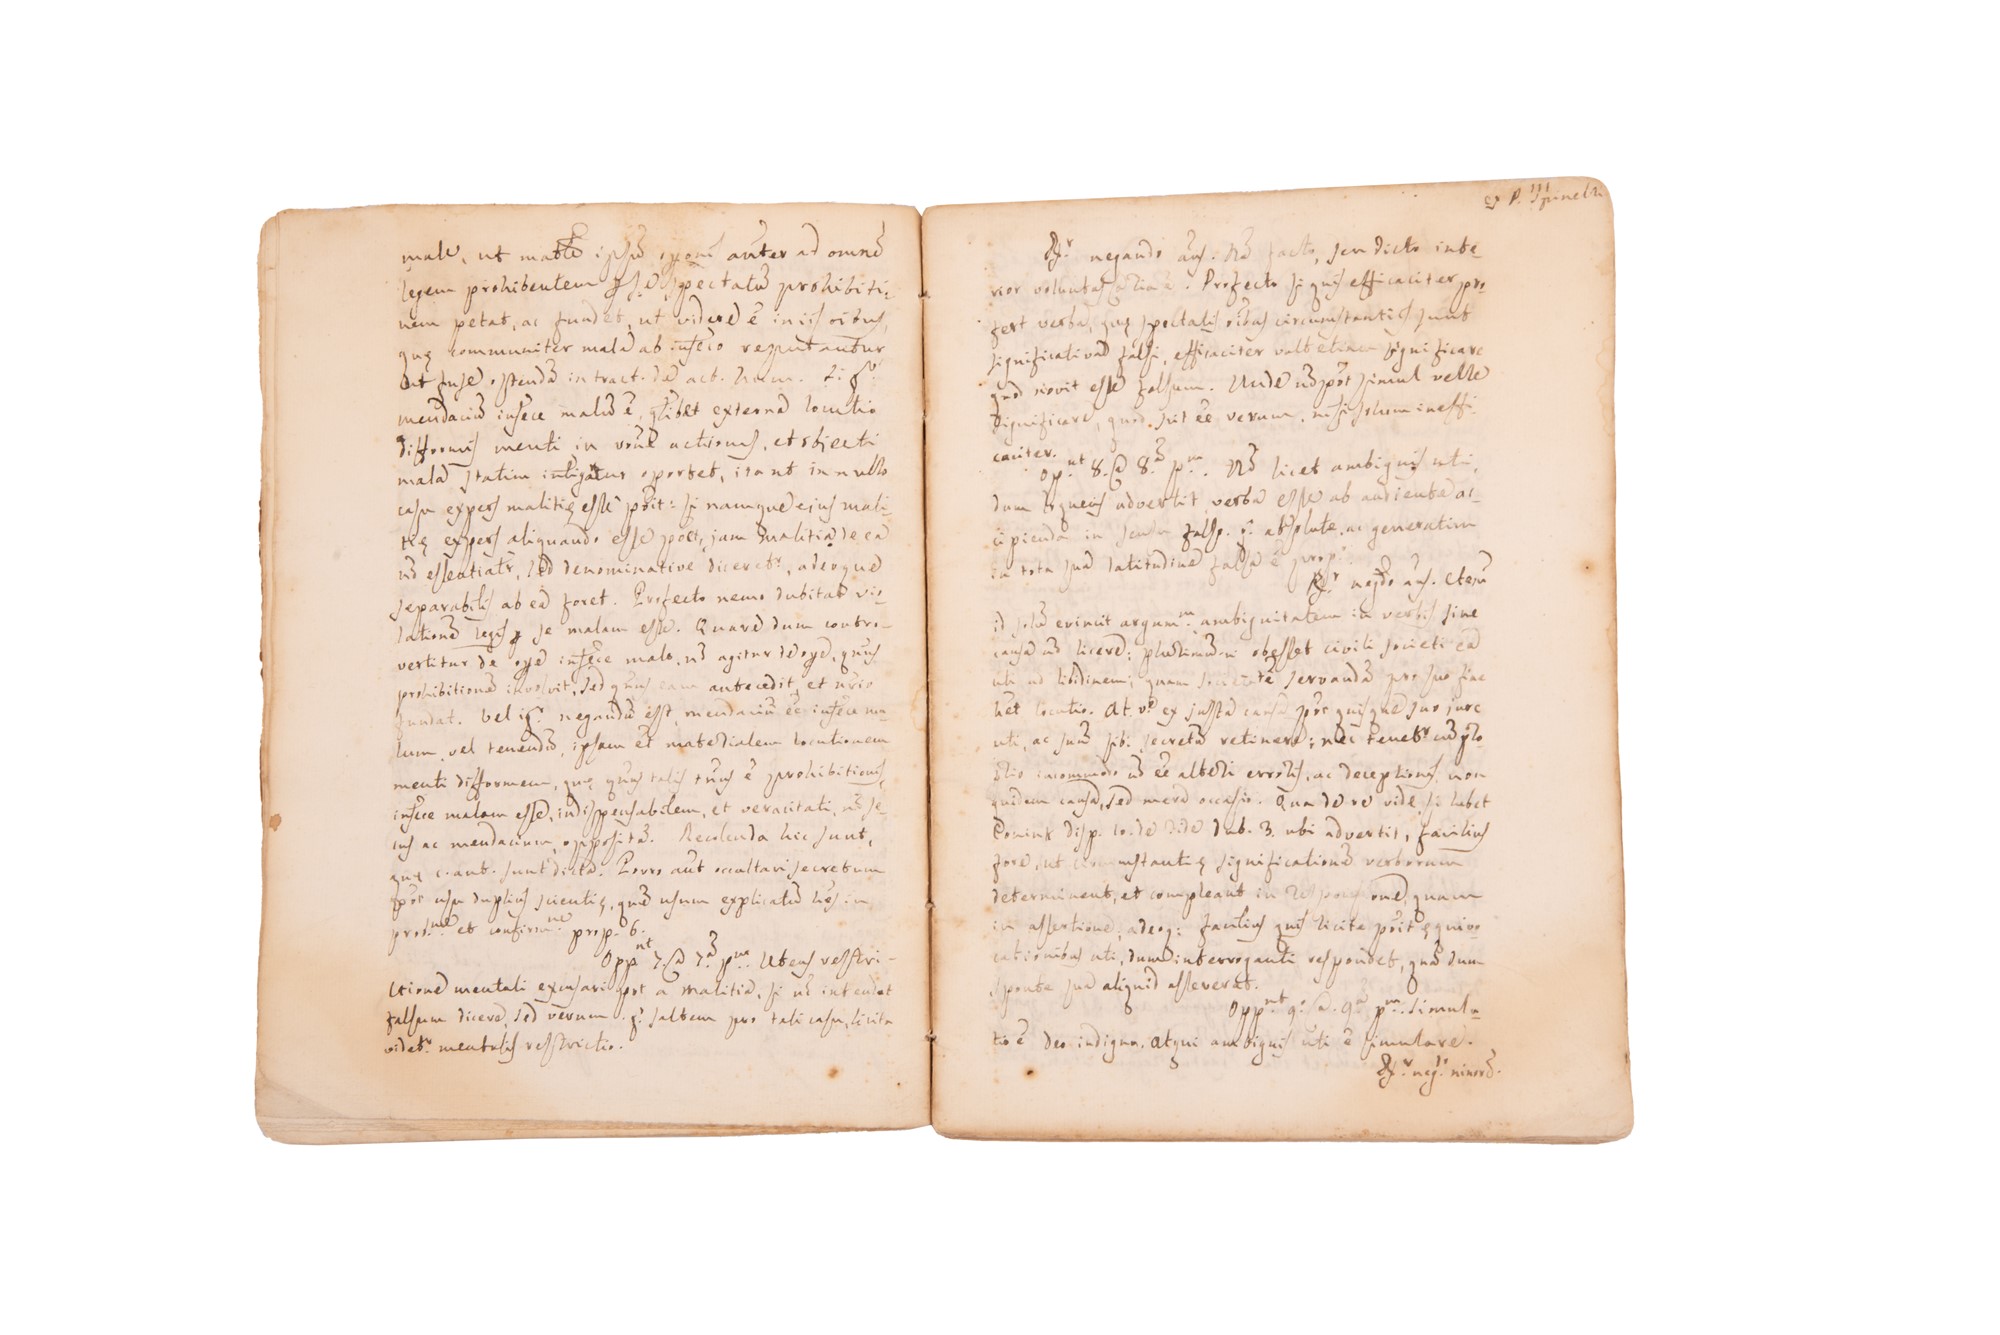 male, ut matē ipsū auter ad omnē
legem prohibentem se spectatā prohibiti-
nem petat, ac fundet, ut viderē ē in iis oībus,
quę communiter mala ab insęco reputantur
ut fuse ostendā in tract. de act. hum. Si
mendaciū insęce malū ē, qlibet externa locutio
difformis menti in actionis, et objecti
mala statim oportet, ita ut in nullo
casu expers malitię esse pōit: si namque ejus mali-
tię expers aliquando esse poēt, jam malitia de ea
nō essentialr, sed denominative diceretr, adeoque
separabilis ab ea foret. Profecto nemo dubitat vio-
lationē legis se malam esse. Quare dum contro-
vertitur de insęce malo, nō agitur de oye, quūs
prohibitionē involvit, sed quūs eam antecedit, et
fundat. Vel igr. negandū esst, mendaciū ēē insęce ma-
lum, vel tenendū, ipsam et materialem locutionem
menti difformem, quę quūs talis ē prohibitionis,
insęce malam esse, indispensabilem, et veracitati,
ac mendacium, oppositā. Recolenda hic sunt,
quę c. ant. sunt dicta. Porro aūt occultari secretum
pōt usu duplicis scientię, quē usum explicatū hēs in
prob.ne et confirm.ne prop. 6.
Oppnt 7. @ 7.ā pm. Utens restri-
ctione mentali excusari post a malitia, si nō intendat
falsum dicere, sed verum. g. saltem pro tali casu, licita
videtr. mentalis restrictio.
ex P. Spinelli
Rr. negando āns. Nā facto, seu dicto inte-
rior voluntas . Profecto si quis efficaciter pro-
fert verba, quę spectatis oībus circumstantiis sunt
significativa falsi, efficaciter vult etiam significare
quod novit esse falsum. Unde nō pōt simul velle
significare, quod scit ēē verum, nisi solum ineffi-
caciter.
Oppnt 8. @ 8.ā pm. Nō licet ambiguis uti,
dum loquens advertit, verba esse ab audiente ac-
cipienda in sensu falso. g. absolute, ac generatim
in tota sua latitudine falsa ē prop.
Rr. negdo āns. Etenī
id solū evincit argum.m ambiguitatem in verbis sine
causa nō licere; obesset civili societi ea
uti ad libidinem; quam societatē servandā pro suo fine
het locutio. At v.o ex justa causa pōt quisque suo jure
uti, ac suū sibi secretū retinere; nec tenetr cum pro-
prio incommodo nō ēē alteri erroris, ac deceptionis, non
quidem causa, sed mera occasio. Qua de re vide, si lubet
Conink disp. 10. de dub. 3. ubi advertit, facilius
fore, ut circumstantię significationē verborum
determinent, et compleant in responsione, quam
in assertione; adeoq: facilius quis licite pōit ęquivo-
cationibus uti, dum interroganti respondet, quā dum
sponte sua aliquid asseverat.
Oppnt 9. @. 9.ā pm. Simula-
tio ē Deo indigna. Atqui ambiguis uti ē simulare.
Rr. negr. minorē.